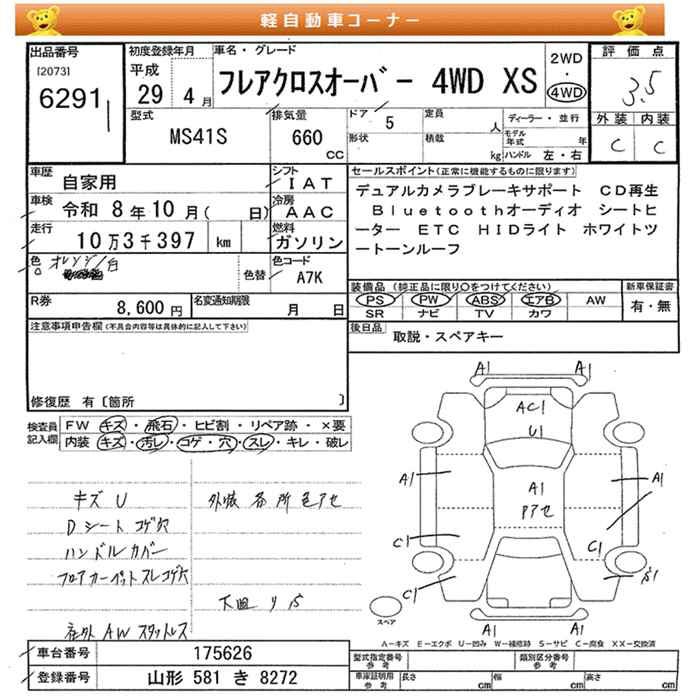 軽自動車コーナー
出品番号
[2073]
6291
初度登録年月
平成
29 4月
車名・グレード
フレアクロスオーバー 4WD XS
2WD
・
4WD
評価点
3.5
外装 内装
C C
型式
MS41S
排気量
660
cc
ドア 5
形状
定員
人
積載
kg
ディーラー・並行
モデル年式 年
ハンドル 左・右
車歴
自家用
シフト
IAT
車検 令和 8年10月( 日)
冷房
AAC
走行
10万3千397 km
燃料
ガソリン
色
オレンジ/白
色替
色コード
A7K
R券
8,600円
名変通知期限
月 日
セールスポイント(正常に機能するものに限ります)
デュアルカメラブレーキサポート CD再生
Bluetoothオーディオ シートヒ
ーター ETC HIDライト ホワイトツ
ートーンルーフ
装備品(純正品に限り○をつけてください)
新車保証書
PS PW ABS エアB AW
SR ナビ TV カワ
有・無
後日品
取説・スペアキー
注意事項申告欄(不具合内容等は具体的に記入して下さい)
修復歴 有〔箇所 〕
検査員記入欄
FW キズ・飛石・ヒビ割・リペア跡・×要
内装 キズ・汚レ・コゲ・穴・スレ・キレ・破レ
キズ U
Dシート コゲ穴
ハンドルカバー
フロアカーペット スレコゲ穴
社外AWスタッドレス
外装 各所色アセ
下回り サビ
A1 A1
AC1
U1
A1 A1
A1
Pアセ
C1 C1
C1 S1
スペア
A1 A1
A-キズ E-エクボ U-凹み W-補修跡 S-サビ C-腐食 XX-交換済
車台番号 175626
登録番号 山形 581 き 8272
型式指定番号
参考
類別区分番号
参考
車庫証明用
参考
長さ cm
幅 cm
高さ cm